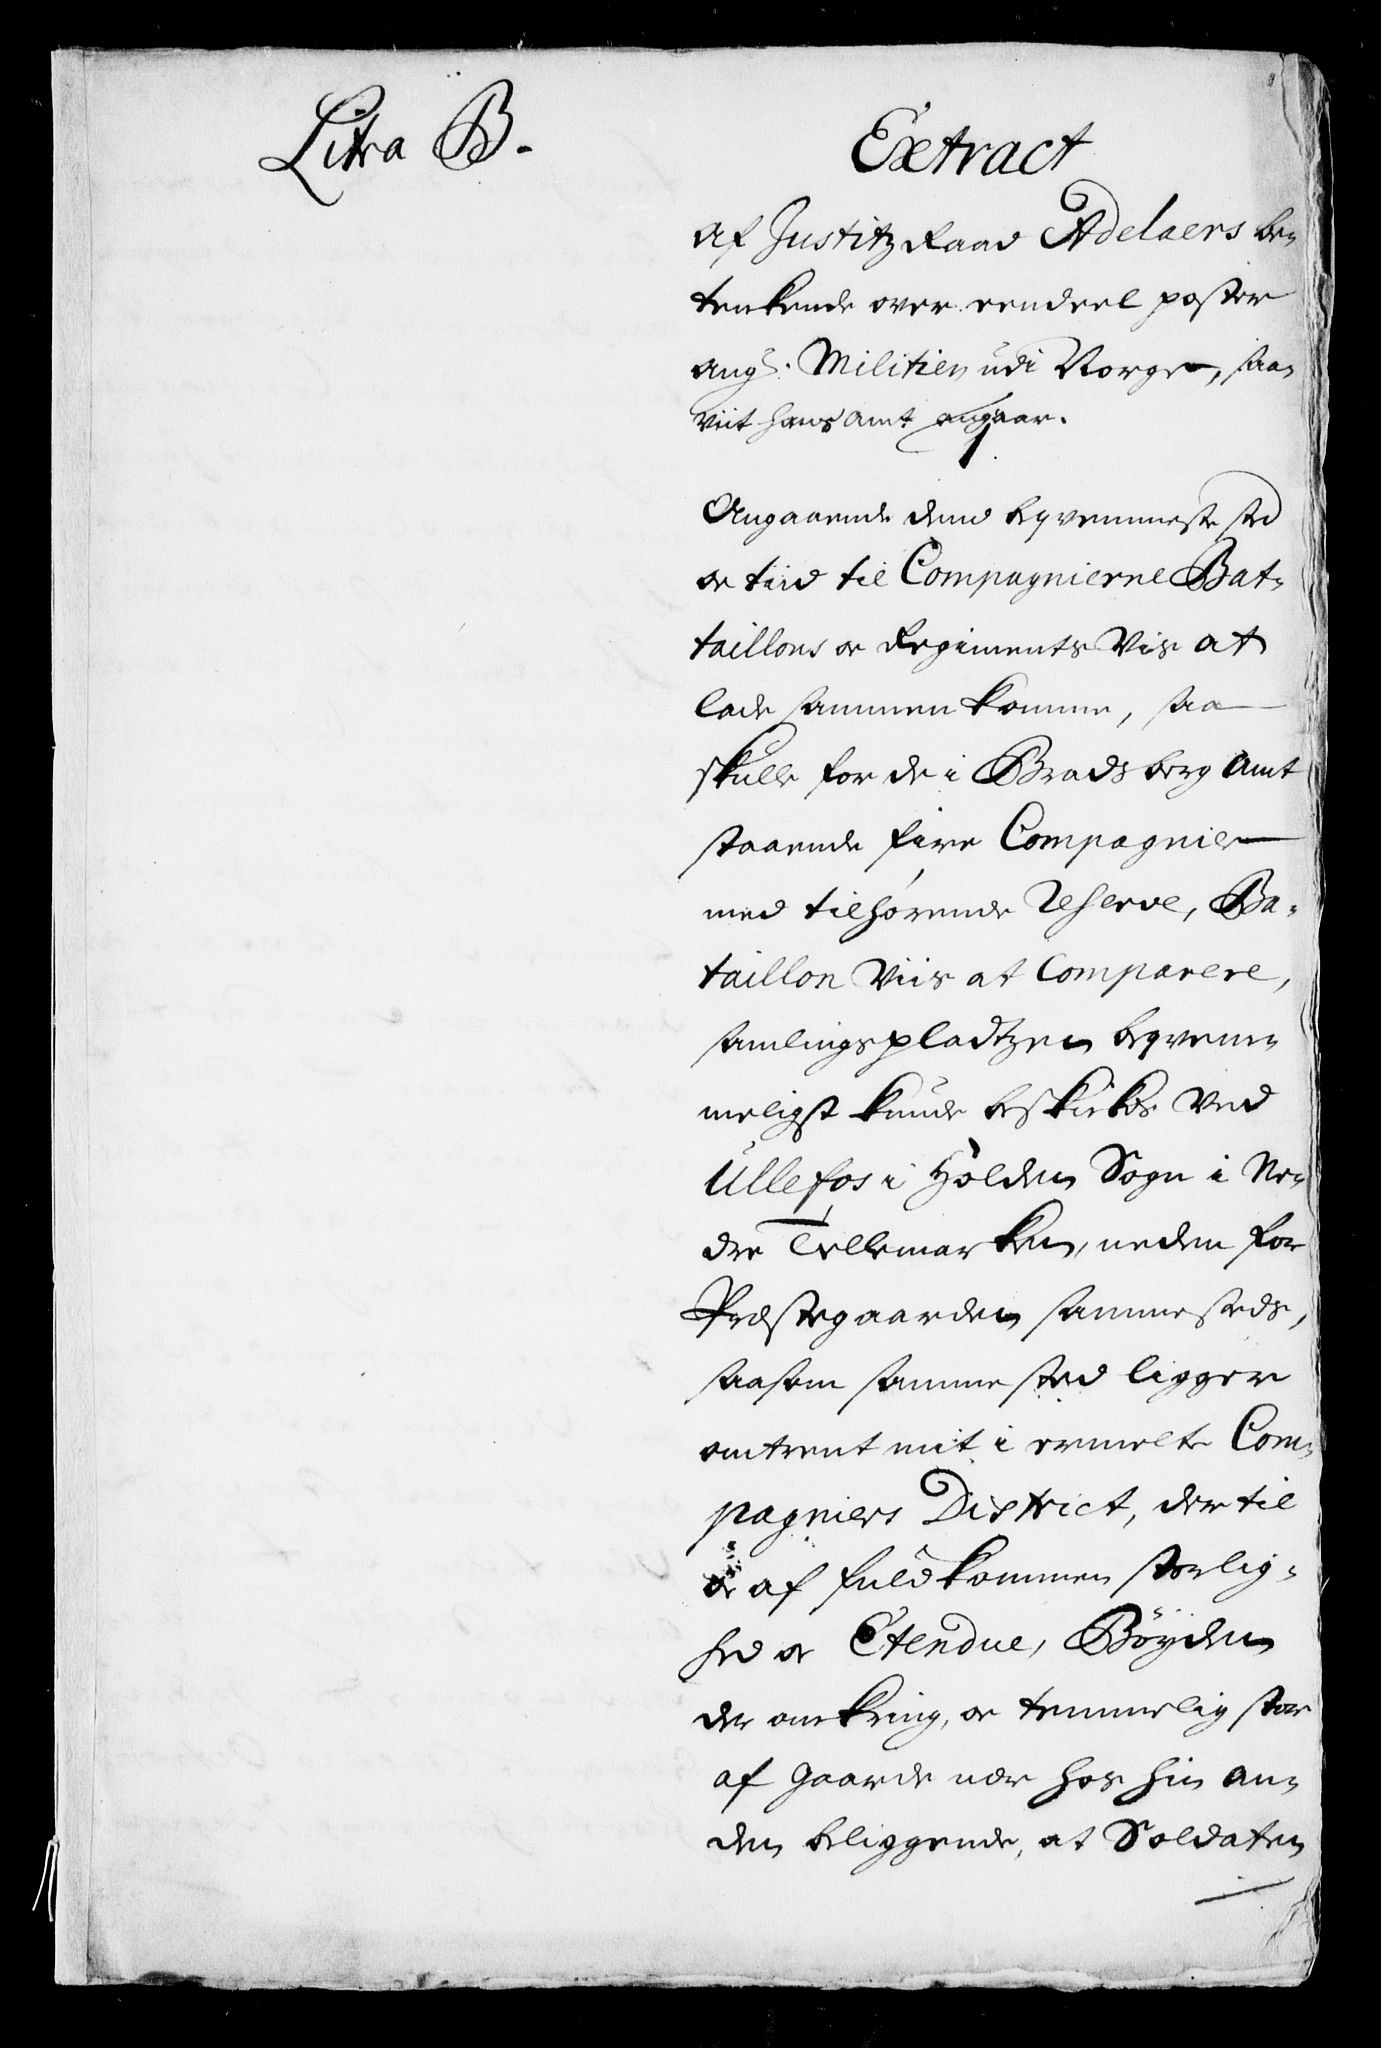 Litra B.
Extract
af Justitz Raad Adelaers be¬
tenkende over eendeel poster
ang: Militien udi Norge, saa
viit hans amt angaar.
Angaaende dend beqvemmeste sted
oc tiid til Compagnierne Bat¬
taillons oc Regiments Vis at
lade sammen komme, saa
skulle for de i Bradsberg Amt
staaende fire Compagnier
med tilhørende Reserve, Ba¬
taillon Viis at Comparere,
samlings pladtzen beqvem¬
meligst kunde beskikkes ved
Ullefos i Holden Sogn i Ne¬
dre Tellemarken, neden for
Præstegaarden sammesteds,
saasom samme sted ligger
omtrent mit i ermelte Com¬
pagniers District, der til
oc af fuldkommen storlig¬
hed oc Etendue, Böyden
der omkring, oc temmelig stor
af gaarde nær hos hin an¬
den beliggende, at Soldaten